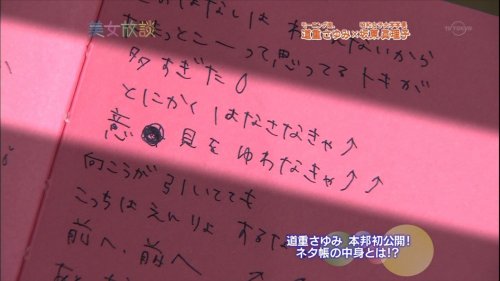 美女放談
モーニング娘。
道重さゆみ×坂東眞理子
TV TOKYO
はなしは
から
って思ってるトキが
多すぎた
とにかく はなさなきゃ↑
意 見をゆわなきゃ↑↑
向こうが引いてても
こっちはえんりょするな
前へ、前へ
道重さゆみ 本邦初公開!
ネタ帳の中身とは!?